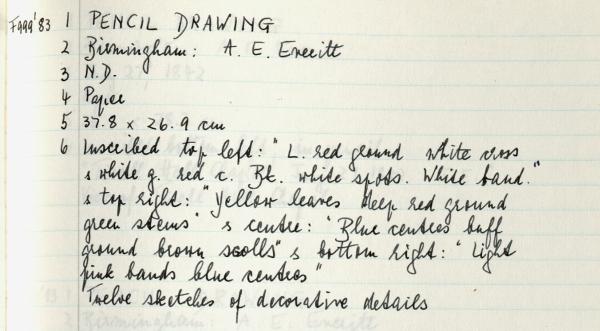 F999'83 1 PENCIL DRAWING
2 Birmingham: A. E. Everitt
3 N.D.
4 Paper
5 37.8 x 26.9 cm
6 Inscribed top left: " L. red ground white cross
& white g. red c. Bt. white spots. White band."
& top right: "Yellow leaves deep red ground
green stems" & centre: "Blue centres buff
ground brown scolls" & bottom right: "Light
pink bands blue centres"
Twelve sketches of decorative details